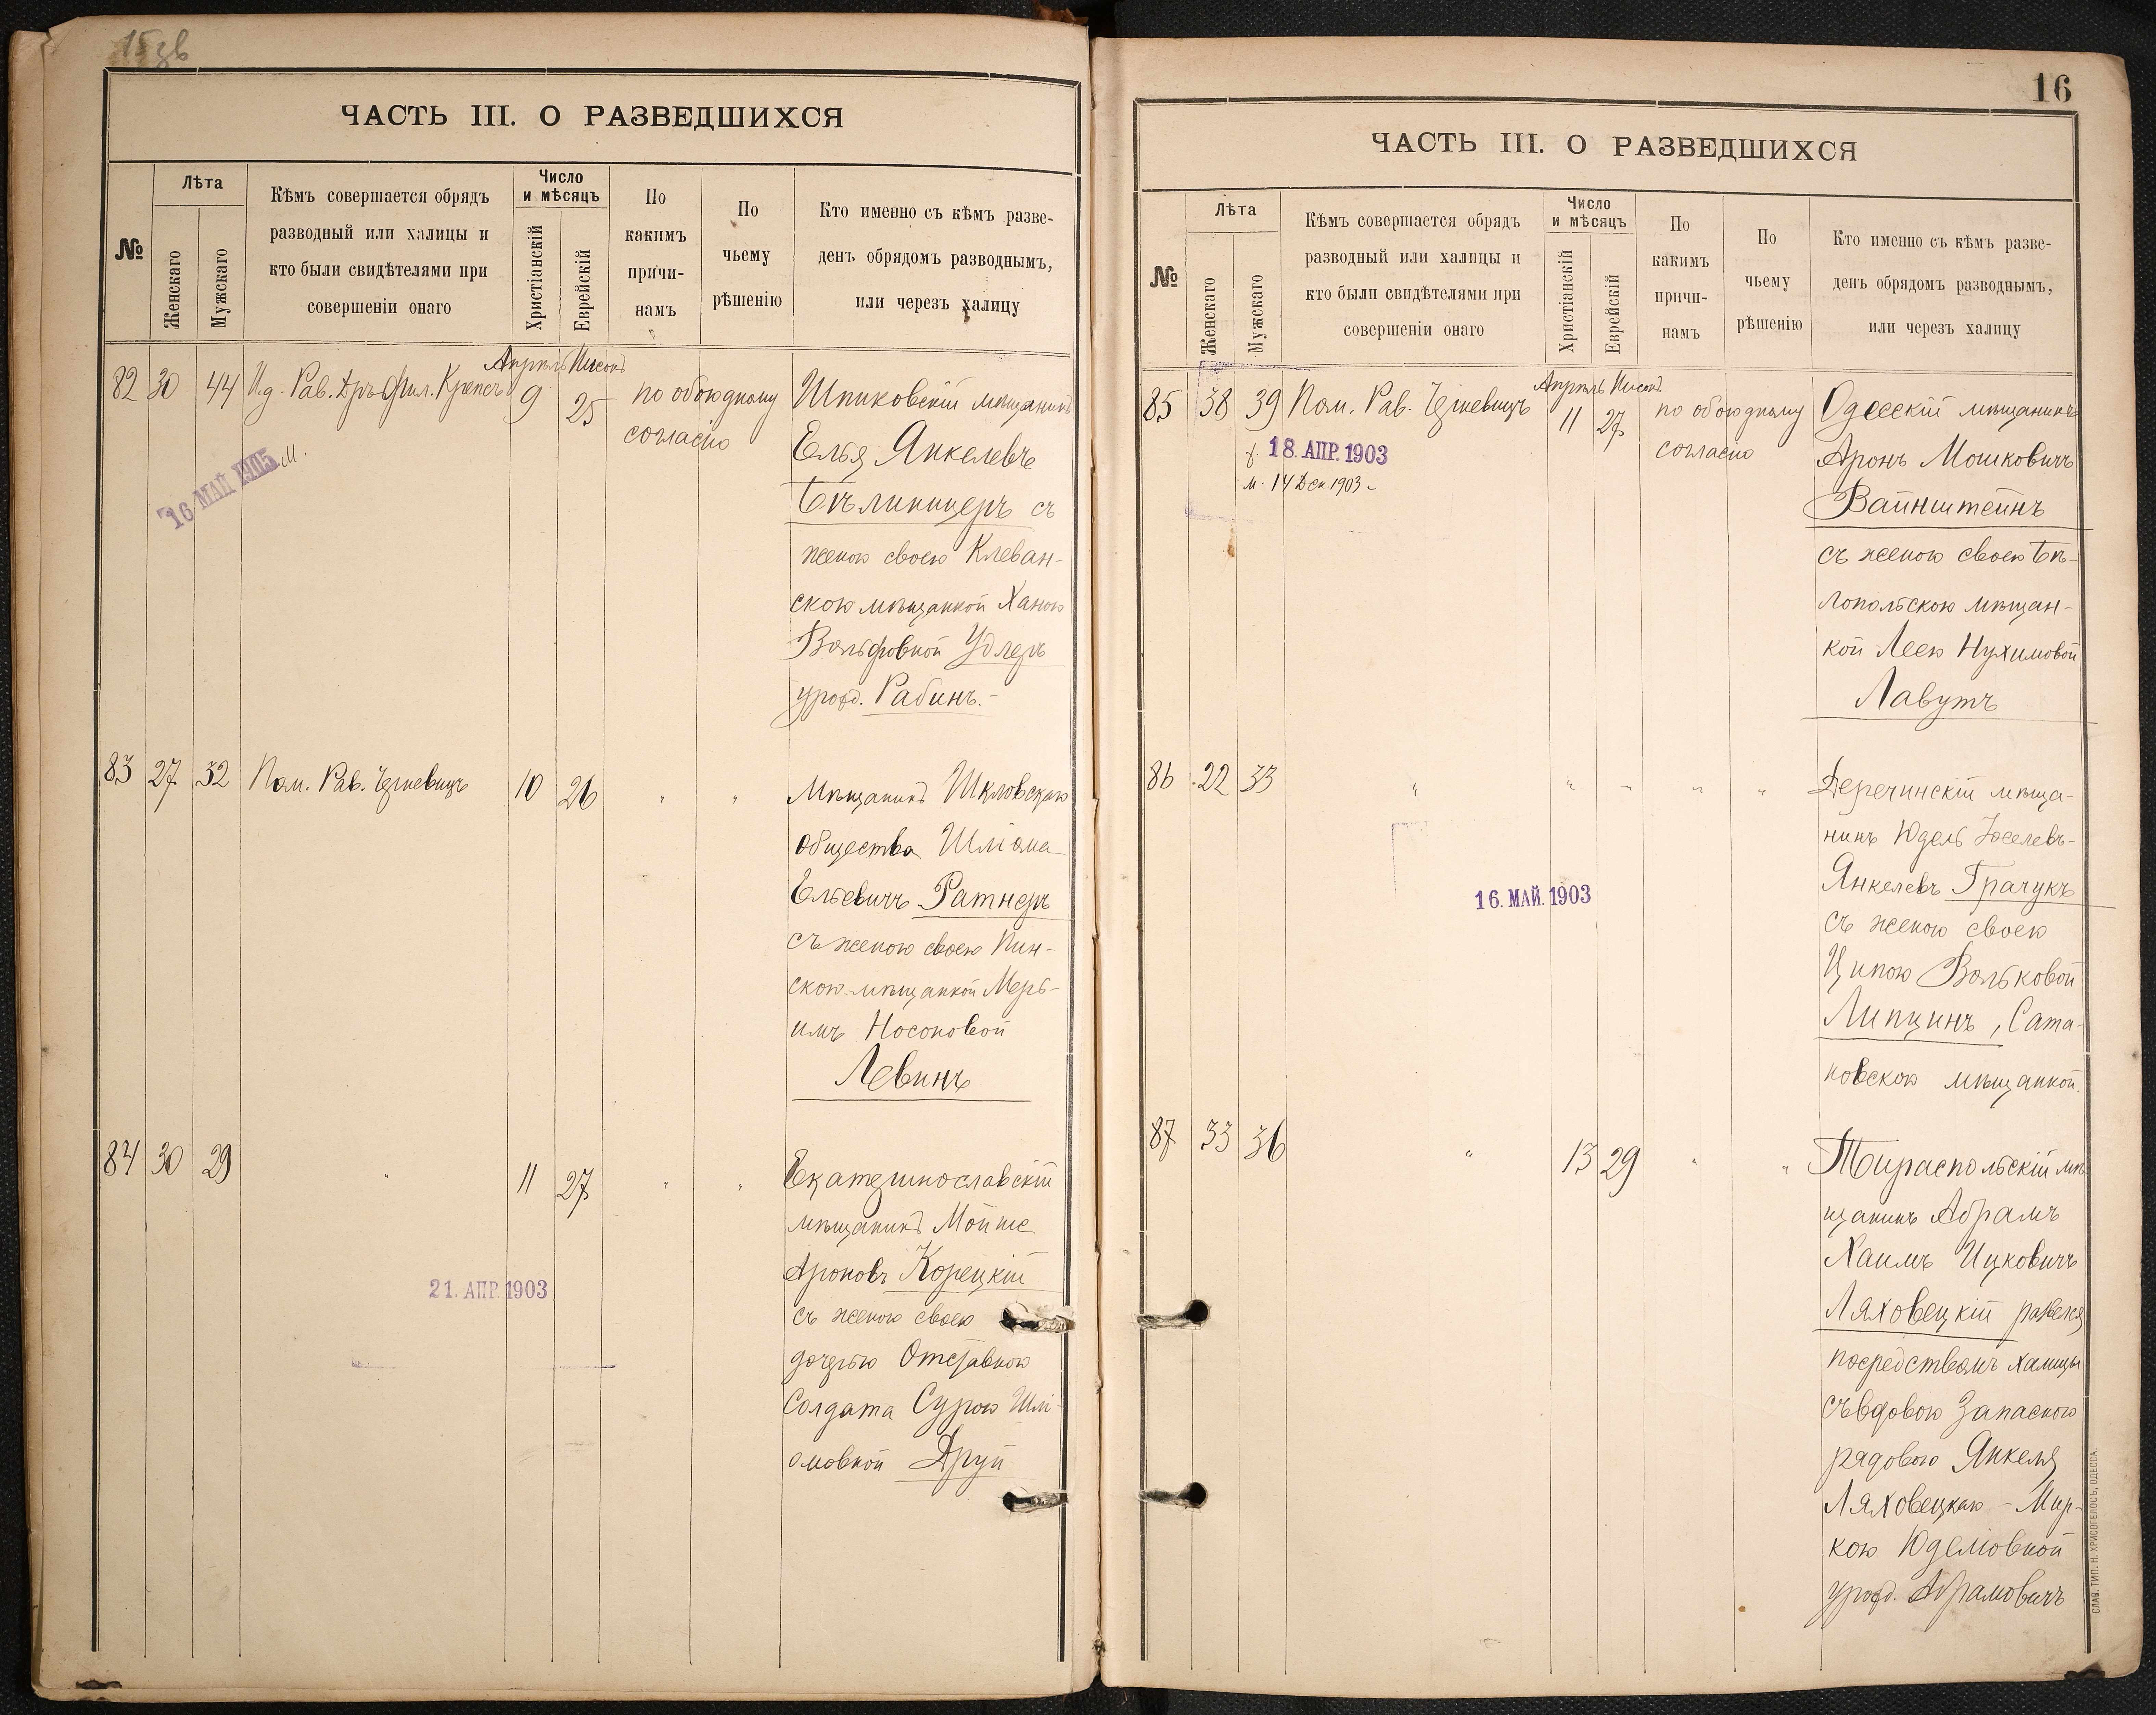 15 зв
ЧАСТЬ III. О РАЗВЕДШИХСЯ
№
Лѣта
Женскаго
Мужскаго
Кѣмъ совершается обрядъ
разводный или халицы и
кто были свидѣтелями при
совершеніи онаго
Число
и мѣсяцъ
Христіанскій
Еврейскій
По
какимъ
причи-
намъ
По
чьему
рѣшенію
Кто именно съ кѣмъ разве-
денъ обрядомъ разводнымъ,
или черезъ халицу
Апрѣль Нисонъ
82 30 44 И.д. Рав. Дръ Фил. Крепсъ 9 25 по обоюдному
согласію
16 МАЙ 1905 м.
Шпиковскій мѣщанинъ
Елья Янкелевъ
Бѣлиницеръ съ
женою своею Клеван-
скою мѣщанкой Ханою
Вольфовной Удлеръ
урожд. Рабинъ.-
83 27 32 Пом. Рав. Чрневицъ 10 26 " "
Мѣщанинъ Шкловскаго
общества Шлiома
Ельевичъ Ратнеръ
съ женою своею Пин-
скою мѣщанкой Мерь-
имъ Носоновой
Левинъ
84 30 29 " 11 27 " "
Екатеринославскій
мѣщанинъ Мойше
Ароновъ Корецкій
съ женою своею
дочерью Отставного
Солдата Сурою Шлі-
омовной Друй
21. АПР. 1903
16
ЧАСТЬ III. О РАЗВЕДШИХСЯ
№
Лѣта
Женскаго
Мужскаго
Кѣмъ совершается обрядъ
разводный или халицы и
кто были свидѣтелями при
совершеніи онаго
Число
и мѣсяцъ
Христіанскій
Еврейскій
По
какимъ
причи-
намъ
По
чьему
рѣшенію
Кто именно съ кѣмъ разве-
денъ обрядомъ разводнымъ,
или черезъ халицу
Апрѣль Нисонъ
85 38 39 Пом. Рав. 11 27 по обоюдному
согласію
18. АПР. 1903
м. 14 Дек. 1903 -
Одесскій мѣщанинъ
Аронъ Мошковичъ
Вайнштейнъ
съ женою своею Бѣ-
лопольскою мѣщан-
кой Леею Нухимовой
Лавутъ
86 22 33 " " " " "
Деречинскій мѣща-
нинъ Юдель Іоселевъ-
Янкелевъ Грачукъ
съ женою своею
Ципою Вольковой
Липцинъ, Сата-
новскою мѣщанкой.
16. МАЙ. 1903
87 33 36 " 13 29 " "
Тираспольскій мѣ-
щанинъ Абрамъ
Хаимъ Ицковичъ
Ляховецкій развелся
посредствомъ халицы
съ вдовою Запасного
рядового Янкеля
Ляховецкаго - Мир-
кою Юделіовной
урожд. Абрамовичъ
СЛАВ. ТИП. Н. ХРИСОГЕЛОСЪ, ОДЕССА.